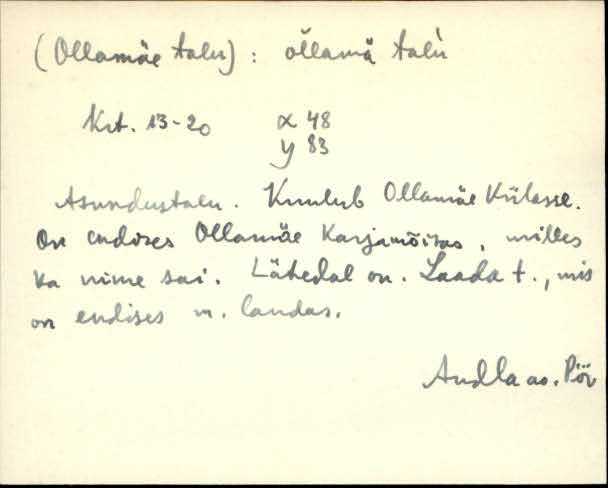 (Ollamäe talu) : ollamä talu
Krt. 13-20 x 48
y 83
Asundustalu. Kuulub Ollamäe külasse.
On endises Ollamäe karjamõisas, milles
ka nime sai. Lähedal on Laada t., mis
on endises m. laudas.
Andla as. Pöi